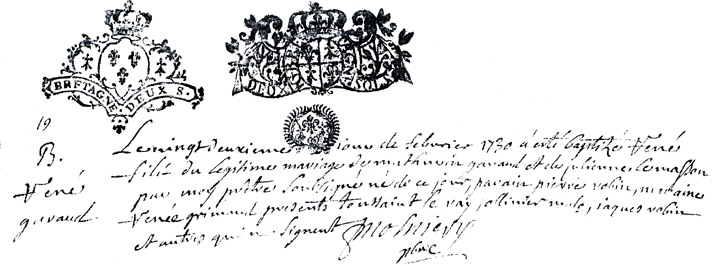 BRETAGNE. DEUX S.
DEUX SOLS
19
B.
René
garaud
Le vingt deuxieme jour de febvrier 1730 a esté baptisé René
fils du legitime mariage de mathurin garaud et de julienne le masson
par moy pretre soussigné né de ce jour, parain pierre robin, maraine
Renée grimaud presents toussaint le ray, ollivier male, jaques robin
et autres qui ne signent
pbre